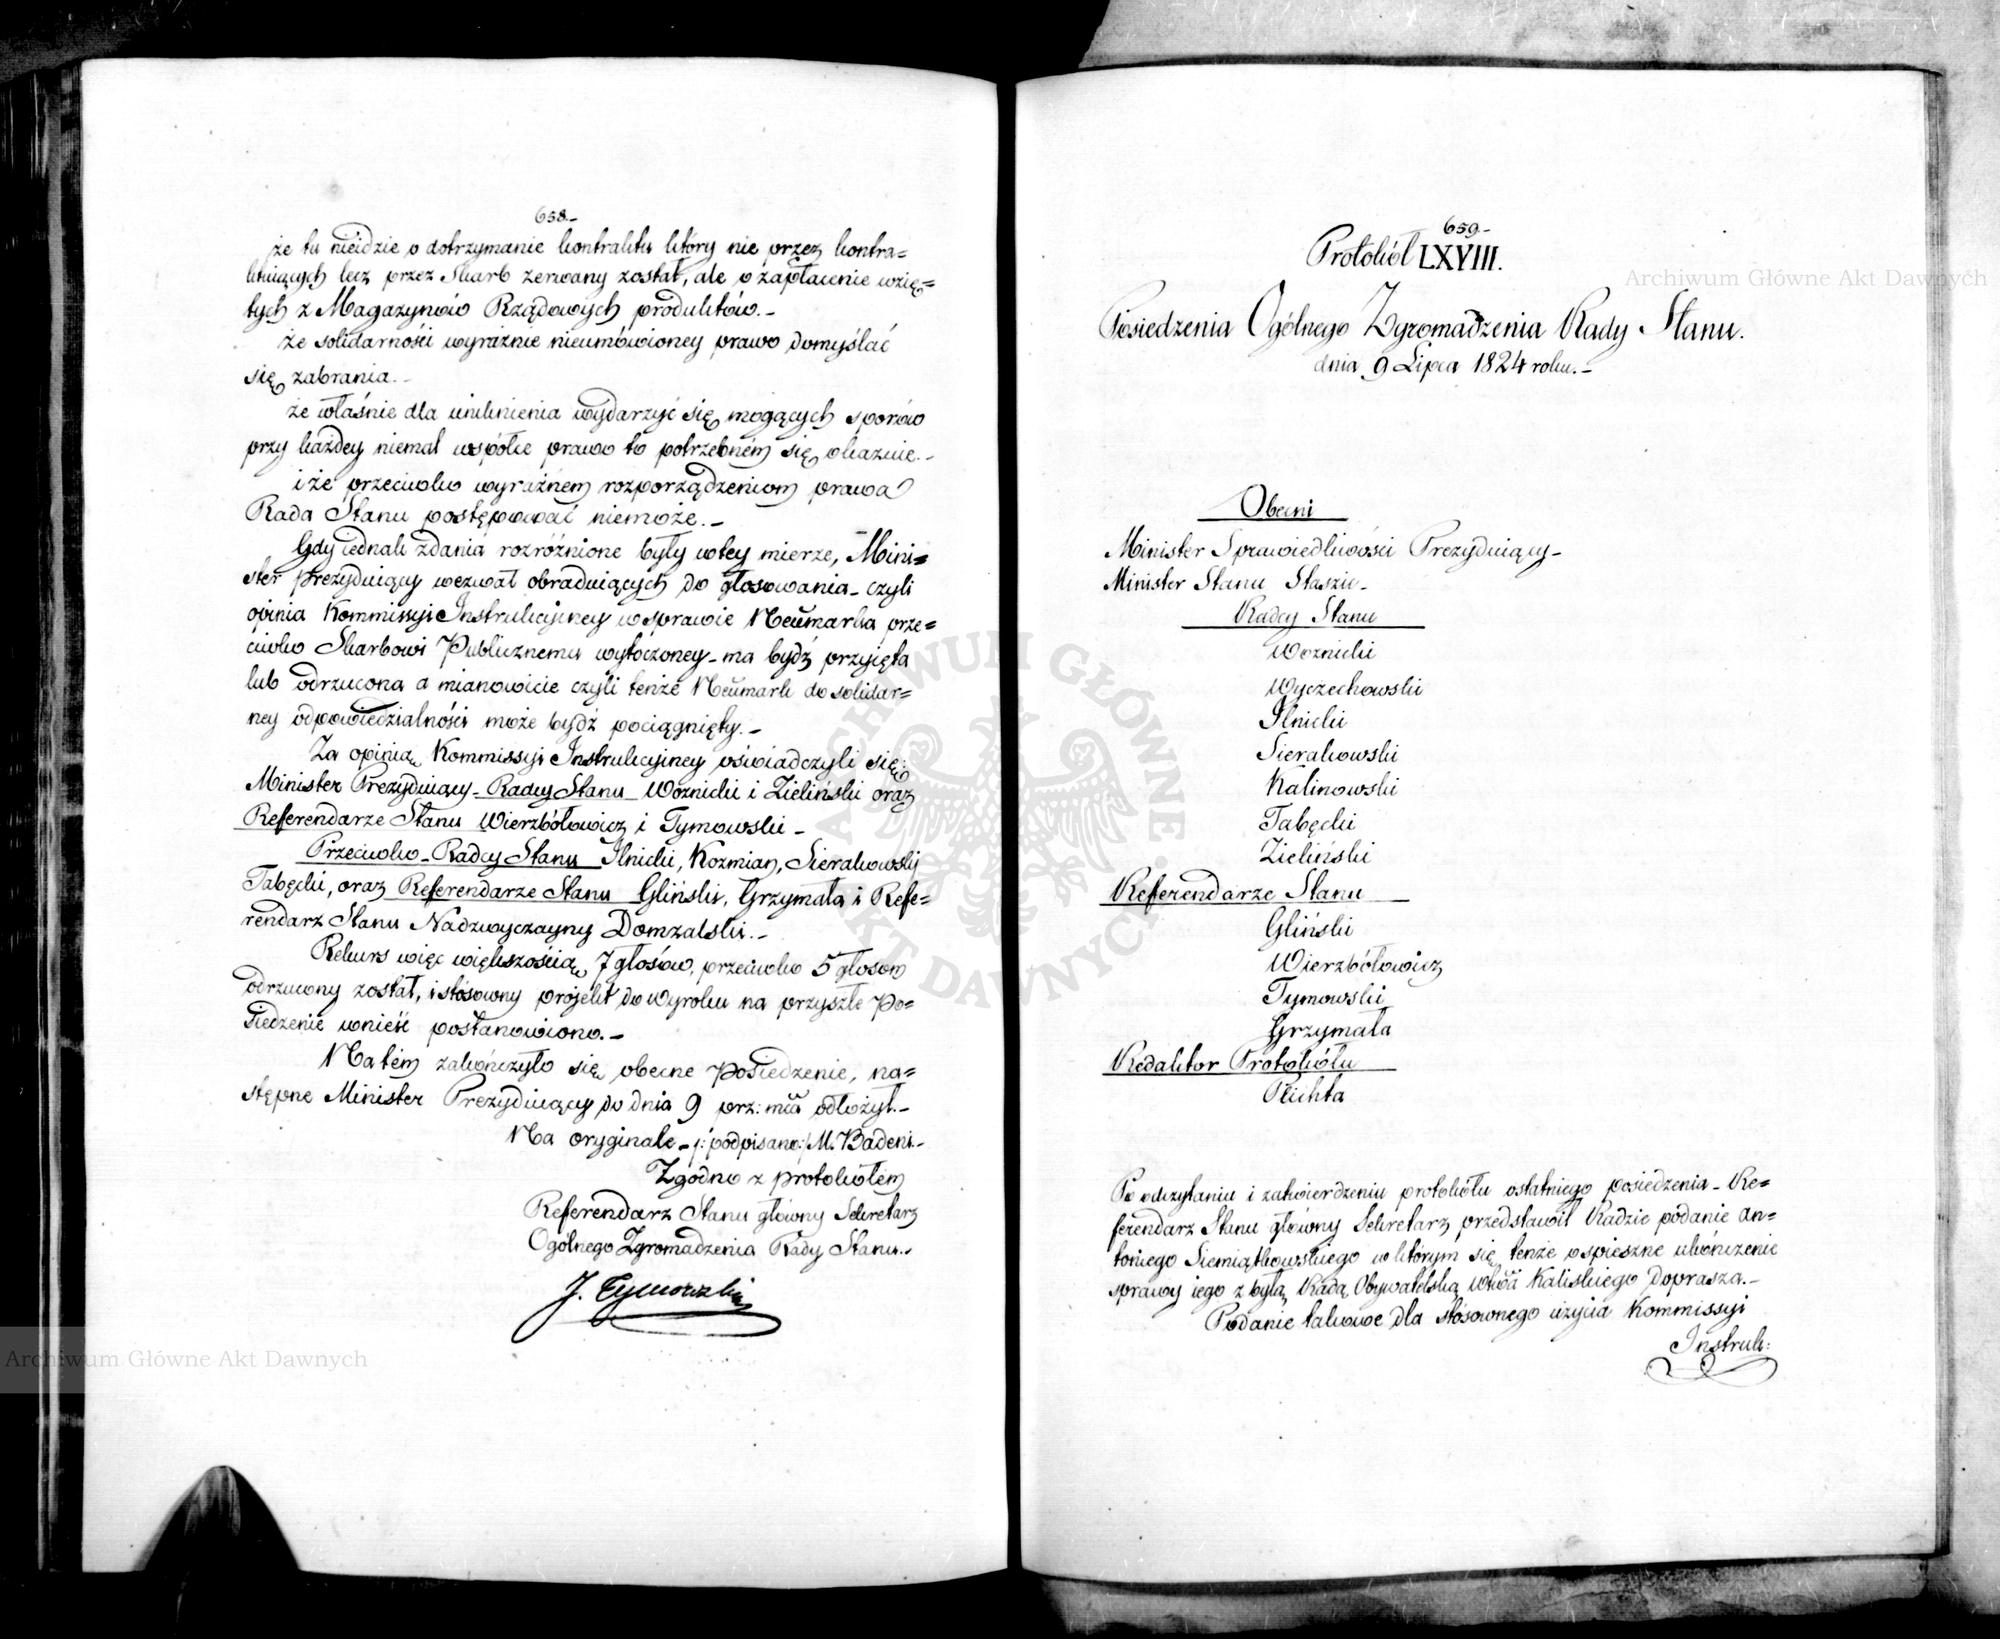 658.-
że tu nieidzie o dotrzymanie kontraktu który nie przez kontra=
ktuiących lecz przez Skarb zerwany został, ale o zapłacenie wzię=
tych z Magazynów Rządowych produktów.-
że solidarności wyraźnie nieumówioney prawo domyślać
się zabrania.-
że właśnie dla uniknienia wydarzyć się mogących sporów
przy każdey niemal wspólce prawo to potrzebném się okazuie.-
i że przeciwko wyraźnem rozporządzeniom prawa
Rada Stanu postępować niemoże.-
Gdy iednak zdania rozróżnione były wtey mierze, Mini=
ster Prezyduiący wezwał obraduiących do głosowania - czyli
opinia Kommissyi Instrukcyiney w sprawie Neümarka prze=
ciwko Skarbowi Publicznemu wytoczoney - ma bydź przyięta
lub odrzucona a mianowicie czyli tenże Neümark do solidar=
ney odpowiedzialności może bydź pociągnięty.-
Za opinią Kommissyi Instrukcyiney oświadczyli się:
Minister Prezyduiący - Radcy Stanu Woźnicki i Zieliński oraz
Referendarze Stanu Wierzbołowicz i Tymowski -
Przeciwko - Radcy Stanu Ilnicki, Koźmian, Sierakowski
Tabęcki, oraz Referendarze Stanu Gliński, Grzymała i Refe=
rendarz Stanu Nadzwyczayny Domzalski.-
Rekurs więc większością 7 głosów, przeciwko 5 głosom
odrzucony został, i stósowny projekt do wyroku na przyszłe Po=
siedzenie wnieść postanowiono.-
Na tém zakończyło się obecne Posiedzenie, na=
stępne Minister Prezyduiący do dnia 9 prz: mca odłożył.-
Na oryginale - /: podpisano:/ M. Badeni.-
Zgodno z protokółem
Referendarz Stanu główny Sekretarz
Ogólnego Zgromadzenia Rady Stanu.-
J. Tymowski
659.-
Protokół LXVIII.
Posiedzenia Ogólnego Zgromadzenia Rady Stanu.
dnia 9 Lipca 1824 roku.-
Obecni
Minister Sprawiedliwości Prezyduiący -
Minister Stanu Staszic -
Radcy Stanu
Woźnicki
Wyczechowski
Ilnicki
Sierakowski
Kalinowski
Tabęcki
Zieliński
Referendarze Stanu
Gliński
Wierzbołowicz
Tymowski
Grzymała
Redaktor Protokółu
Plichta
Po odczytaniu i zatwierdzeniu protokółu ostatniego posiedzenia - Re=
ferendarz Stanu główny Sekretarz przedstawił Radzie podanie An=
toniego Siemiątkowskiego w którym się tenże o spieszne ukończenie
sprawy iego z byłą Radą Obywatelską Wtwa Kaliskiego doprasza.-
Podanie takowe dla stósownego użycia Kommissyi
Instruk:
Archiwum Główne Akt Dawnych
Archiwum Główne Akt Dawnych
ARCHIWUM GŁÓWNE AKT DAWNYCH